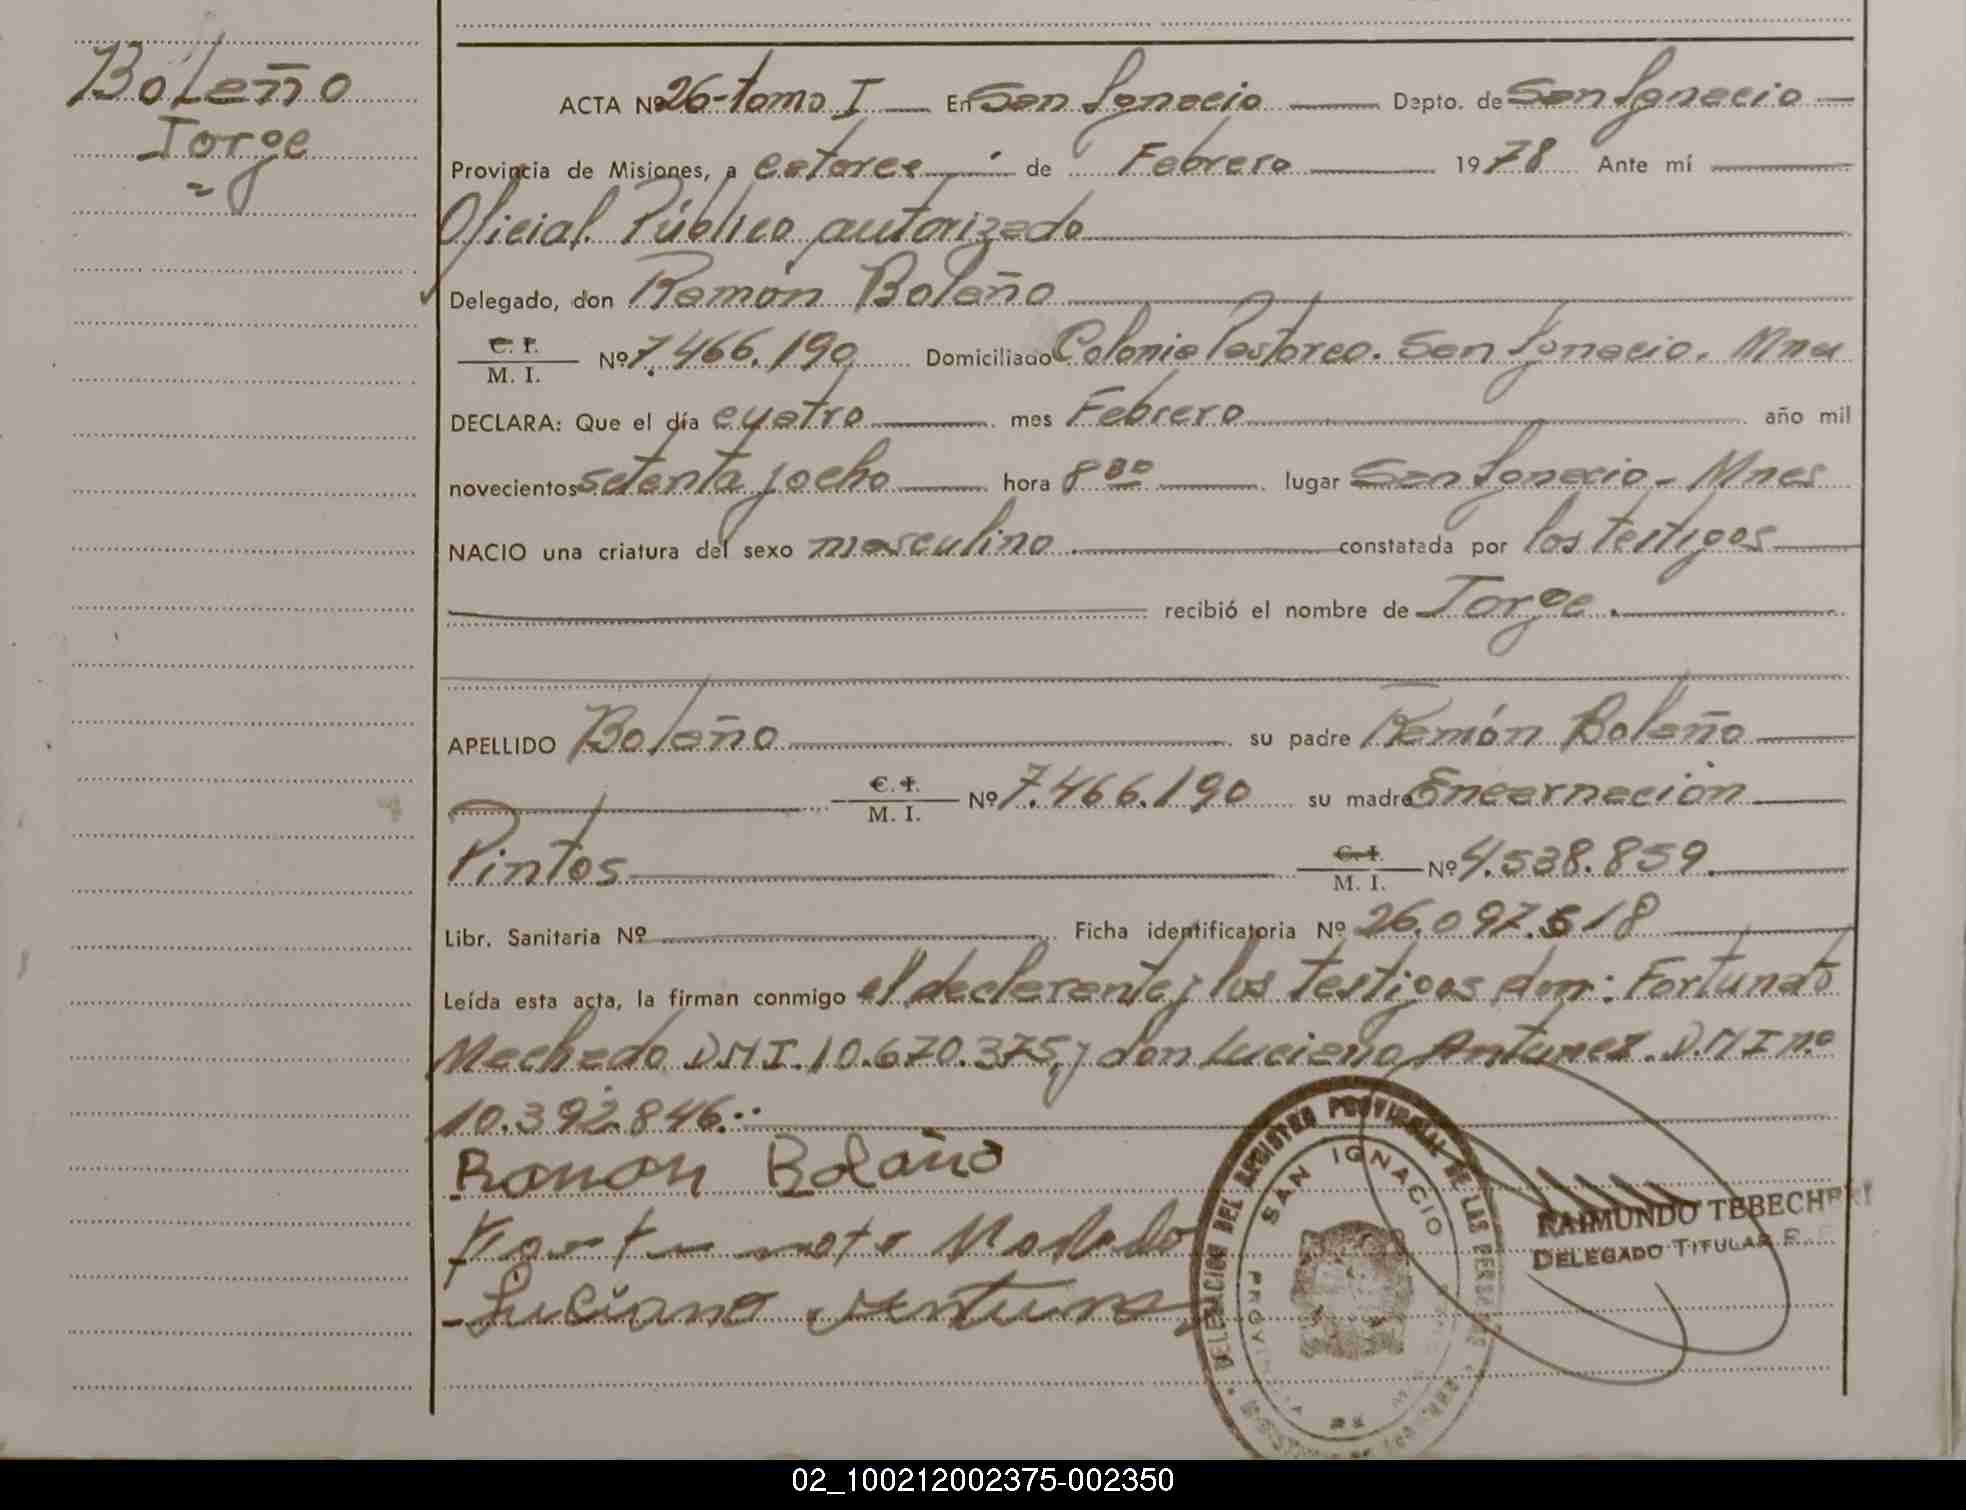 Bolaño
Jorge
=
ACTA Nº 26-tomo I En San Ignacio Depto. de San Ignacio
Provincia de Misiones, a catorce de Febrero 1978 Ante mí
Oficial Público autorizado
Delegado, don Ramón Bolaño
C. I.
M. I.
Nº 7.466.190 Domiciliado Colonia Pastoreo. San Ignacio. Mnes
DECLARA: Que el día cuatro mes Febrero año mil
novecientos setenta y ocho hora 8 30 lugar San Ignacio - Mnes
NACIO una criatura del sexo masculino constatada por los testigos
recibió el nombre de Jorge.
APELLIDO Bolaño su padre Ramón Bolaño
C. I.
M. I.
Nº 7.466.190 su madre Encarnación
Pintos
C. I.
M. I.
Nº 4.538.859.
Libr. Sanitaria Nº Ficha identificatoria Nº 26.097.518
Leída esta acta, la firman conmigo el declarante y los testigos don: Fortunato
Machado D.M.I. 10.670.375, y don Luciano Antunez. D.M.I nº
10.392.846.
Ramon Bolaño
Fortunato Machado
Luciano Antunez
DELEGACION DEL REGISTRO PROVINCIAL DE LAS PERSONAS
SAN IGNACIO
PROVINCIA DE
RAIMUNDO TEBECHERI
DELEGADO TITULAR R.
02_100212002375-002350